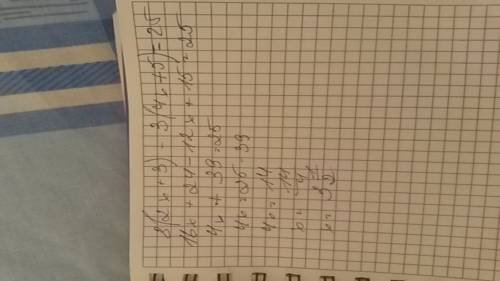 8(2x+3) - 3(4x+5)=25
16x+24-12x+15=25
4x+39=25
4x=25-39
4x=-14
x=-14/4